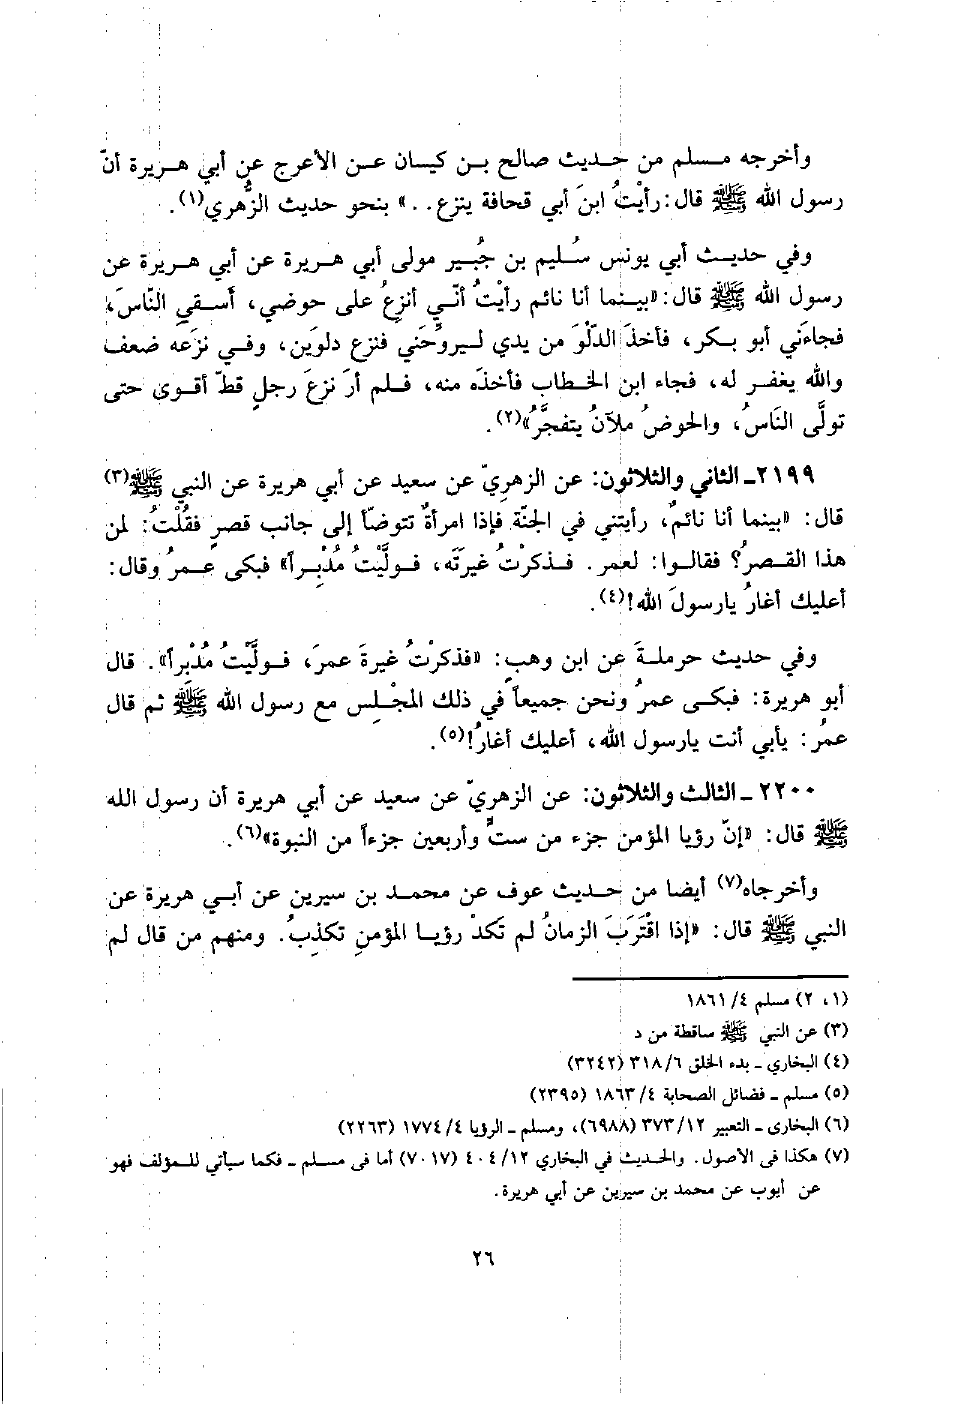 وأخرجه مسلم من حديث صالح بن كيسان عن الأعرج عن أبي هريرة أنّ
رسول الله ﷺ قال: رأيْتُ ابنَ أبي قحافة ينزع..» بنحو حديث الزُّهري(١).
وفي حديث أبي يونس سُليم بن جُبير مولى أبي هريرة عن أبي هريرة عن
رسول الله ﷺ قال: «بينما أنا نائم رأيْتُ أنّي أنزِعُ على حوضي، أَسقي النّاسَ،
فجاءَني أبو بكر، فأخذَ الدّلْوَ من يدي ليروِّحَني فنزع دلوَين، وفي نزعه ضعف
والله يغفر له، فجاء ابن الخطاب فأخذَه منه، فلم أرَ نزعَ رجلٍ قطّ أقوى حتى
تولَّى النَاسُ، والحوضُ ملآنُ يتفجَّرُ»(٢).
٢١٩٩ـ الثاني والثلاثون: عن الزهريّ عن سعيد عن أبي هريرة عن النبي ﷺ(٣)
قال: «بينما أنا نائمٌ، رأيتني في الجنّة فإذا امرأةٌ تتوضّأ إلى جانب قصرٍ فقُلْتُ: لمن
هذا القصرُ؟ فقالوا: لعمر. فذكرْتُ غيرتَه، فولَّيْتُ مُدْبِراً» فبكى عمرُ وقال:
أعليك أغارُ يارسولَ الله!(٤).
وفي حديث حرملةَ عن ابن وهبٍ: «فذكرْتُ غيرةَ عمرَ، فولَّيْتُ مُدْبِراً». قال
أبو هريرة: فبكى عمرُ ونحن جميعاً في ذلك المجْلِس مع رسول الله ﷺ ثم قال
عمرُ: يأبي أنت يارسول الله، أعليك أغارُ!(٥).
٢٢٠٠ ـ الثالث والثلاثون: عن الزهريّ عن سعيد عن أبي هريرة أن رسول الله
ﷺ قال: «إنّ رؤيا المؤمن جزء من ستٍّ وأربعين جزءاً من النبوة»(٦).
وأخرجاه(٧) أيضا من حديث عوف عن محمد بن سيرين عن أبي هريرة عن
النبي ﷺ قال: «إذا اقْتَرَبَ الزمانُ لم تَكَدْ رؤيا المؤمنِ تكذِبُ. ومنهم من قال لم
(١، ٢) مسلم ٤/ ١٨٦١
(٣) عن النبي ﷺ ساقطة من د
(٤) البخاري ـ بدء الخلق ٦/ ٣١٨ (٣٢٤٢)
(٥) مسلم ـ فضائل الصحابة ٤/ ١٨٦٣ (٢٣٩٥)
(٦) البخارى ـ التعبير ١٢/ ٣٧٣ (٦٩٨٨)، ومسلم ـ الرؤيا ٤/ ١٧٧٤ (٢٢٦٣)
(٧) هكذا فى الأصول. والحديث في البخاري ١٢/ ٤٠٤ (٧٠١٧) أما فى مسلم ـ فكما سيأتي للمؤلف فهو
عن أيوب عن محمد بن سيرين عن أبي هريرة.
٢٦